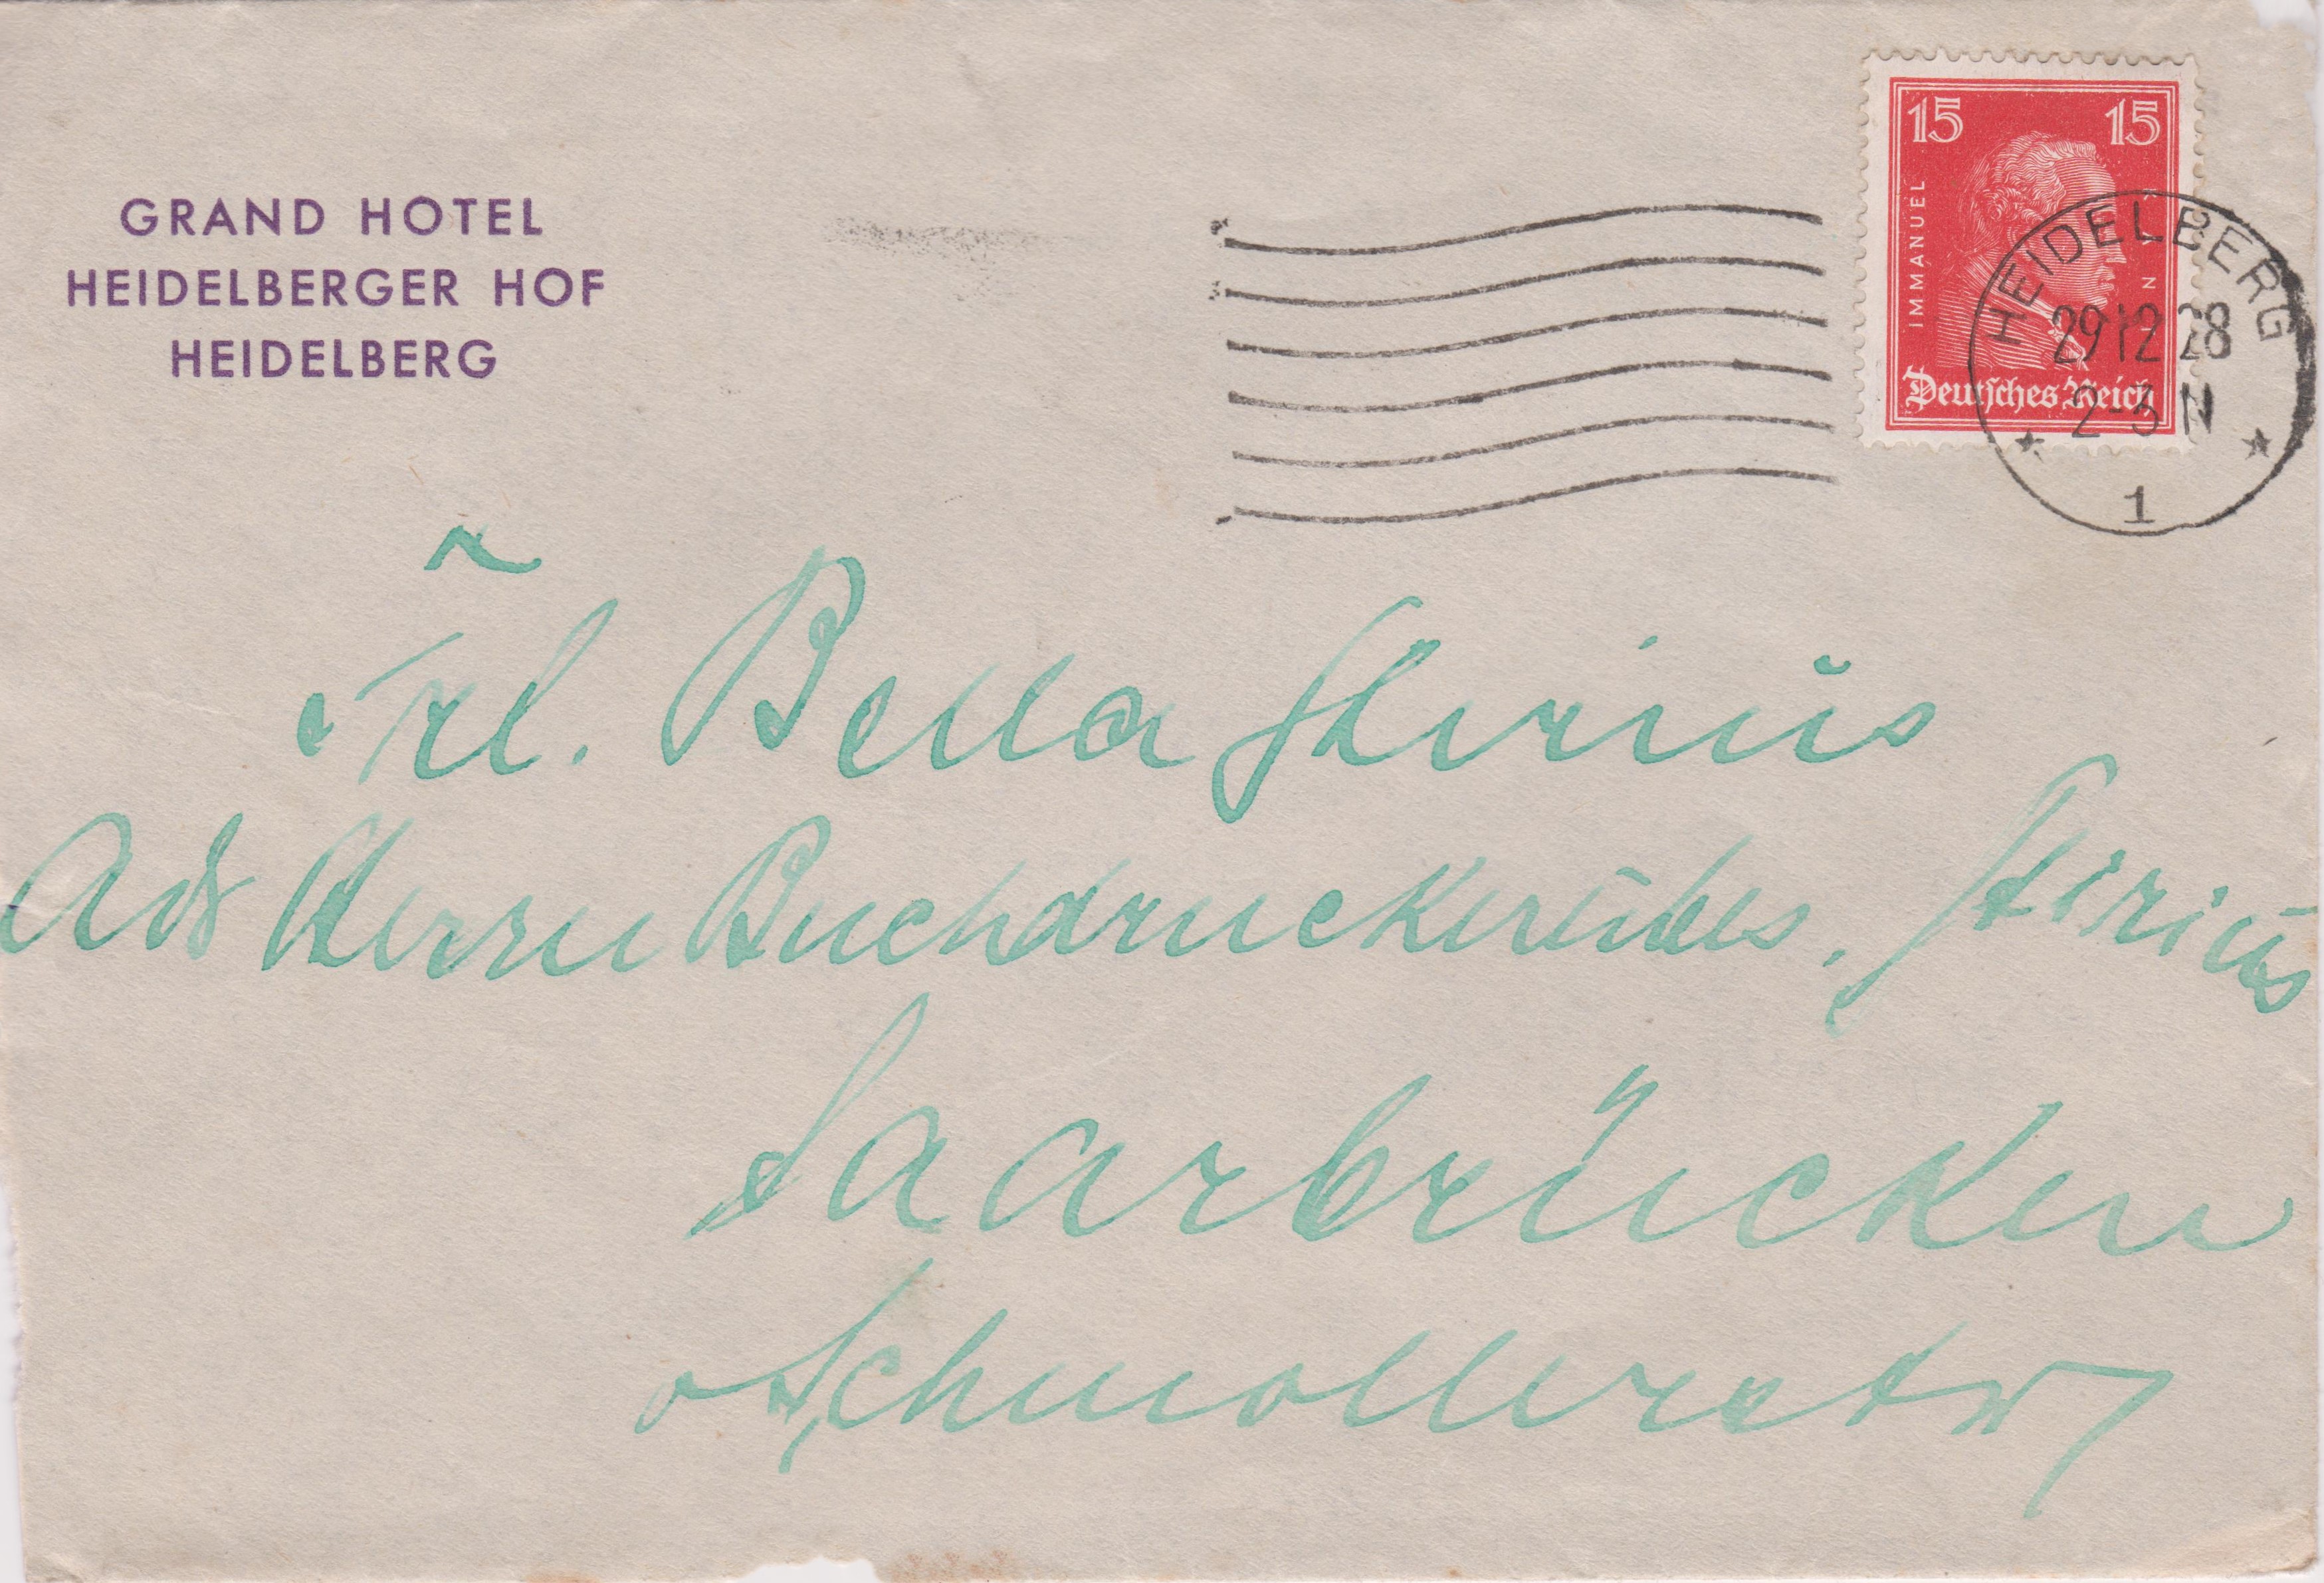 GRAND HOTEL
HEIDELBERGER HOF
HEIDELBERG
15 15
IMMANUEL
Deutsches Reich
HEIDELBERG
29 12 28
2-3 N
1
Frl. Bella
Adr Herrn Buchdruckereibes.
Saarbrücken
Schmollerstr 7